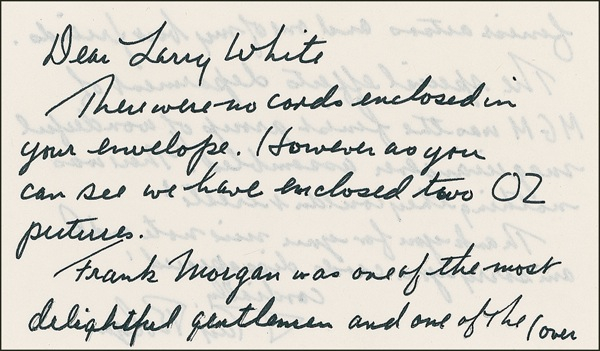 Dear Larry White
There were no cards enclosed in
your envelope. However as you
can see we have enclosed two OZ
pictures.
Frank Morgan was one of the most
delightful gentlemen and one of the (over